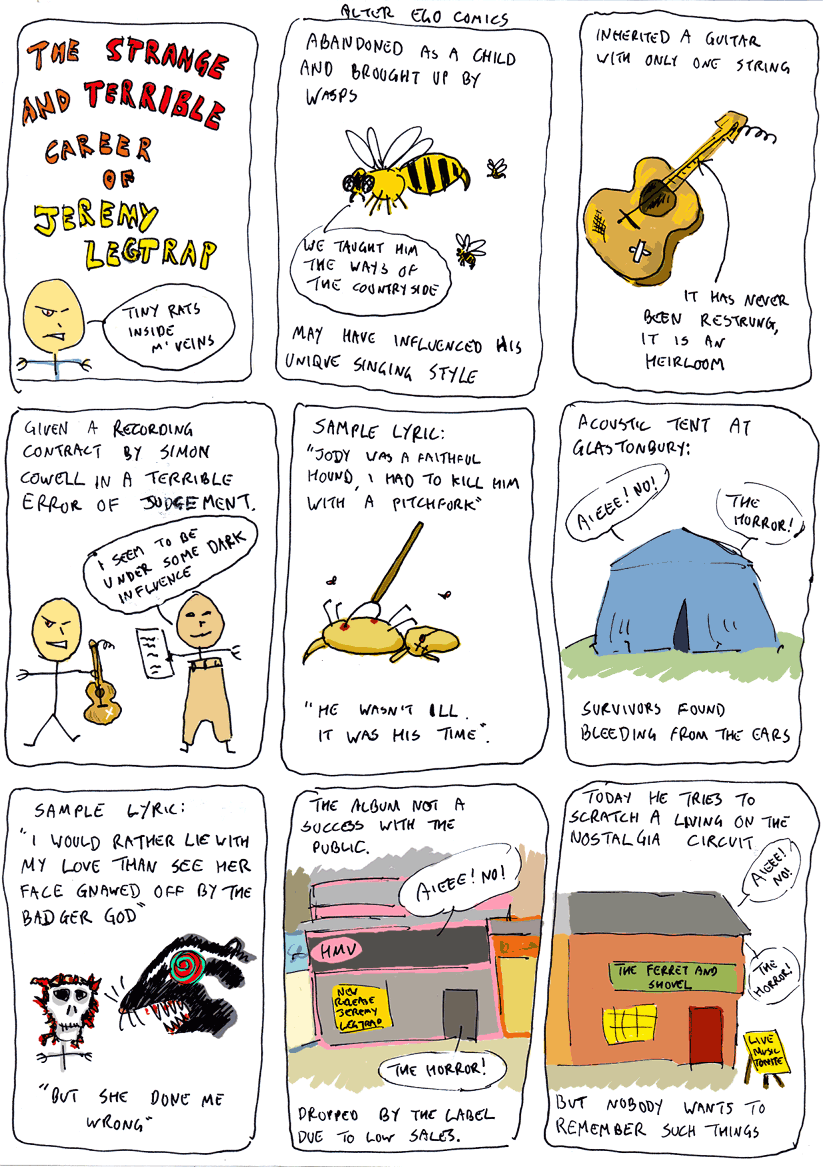 ALTER EGO COMICS
THE STRANGE
AND TERRIBLE
CAREER
OF
JEREMY
LEGTRAP
TINY RATS
INSIDE
M' VEINS
ABANDONED AS A CHILD
AND BROUGHT UP BY
WASPS
WE TAUGHT HIM
THE WAYS OF
THE COUNTRYSIDE
MAY HAVE INFLUENCED HIS
UNIQUE SINGING STYLE
INHERITED A GUITAR
WITH ONLY ONE STRING
IT HAS NEVER
BEEN RESTRUNG,
IT IS AN
HEIRLOOM
GIVEN A RECORDING
CONTRACT BY SIMON
COWELL IN A TERRIBLE
ERROR OF JUDGEMENT.
I SEEM TO BE
UNDER SOME DARK
INFLUENCE
SAMPLE LYRIC:
"JODY WAS A FAITHFUL
HOUND, I HAD TO KILL HIM
WITH A PITCHFORK"
"HE WASN'T ILL.
IT WAS HIS TIME".
ACOUSTIC TENT AT
GLASTONBURY:
AIEEE! NO!
THE
HORROR!
SURVIVORS FOUND
BLEEDING FROM THE EARS
SAMPLE LYRIC:
"I WOULD RATHER LIE WITH
MY LOVE THAN SEE HER
FACE GNAWED OFF BY THE
BADGER GOD"
"BUT SHE DONE ME
WRONG"
THE ALBUM NOT A
SUCCESS WITH THE
PUBLIC.
AIEEE! NO!
HMV
NEW
RELEASE
JEREMY
LEGTRAP
THE HORROR!
DROPPED BY THE LABEL
DUE TO LOW SALES.
TODAY HE TRIES TO
SCRATCH A LIVING ON THE
NOSTALGIA CIRCUIT
AIEEE!
NO!
THE
HORROR!
THE FERRET AND
SHOVEL
LIVE
MUSIC
TONITE
BUT NOBODY WANTS TO
REMEMBER SUCH THINGS